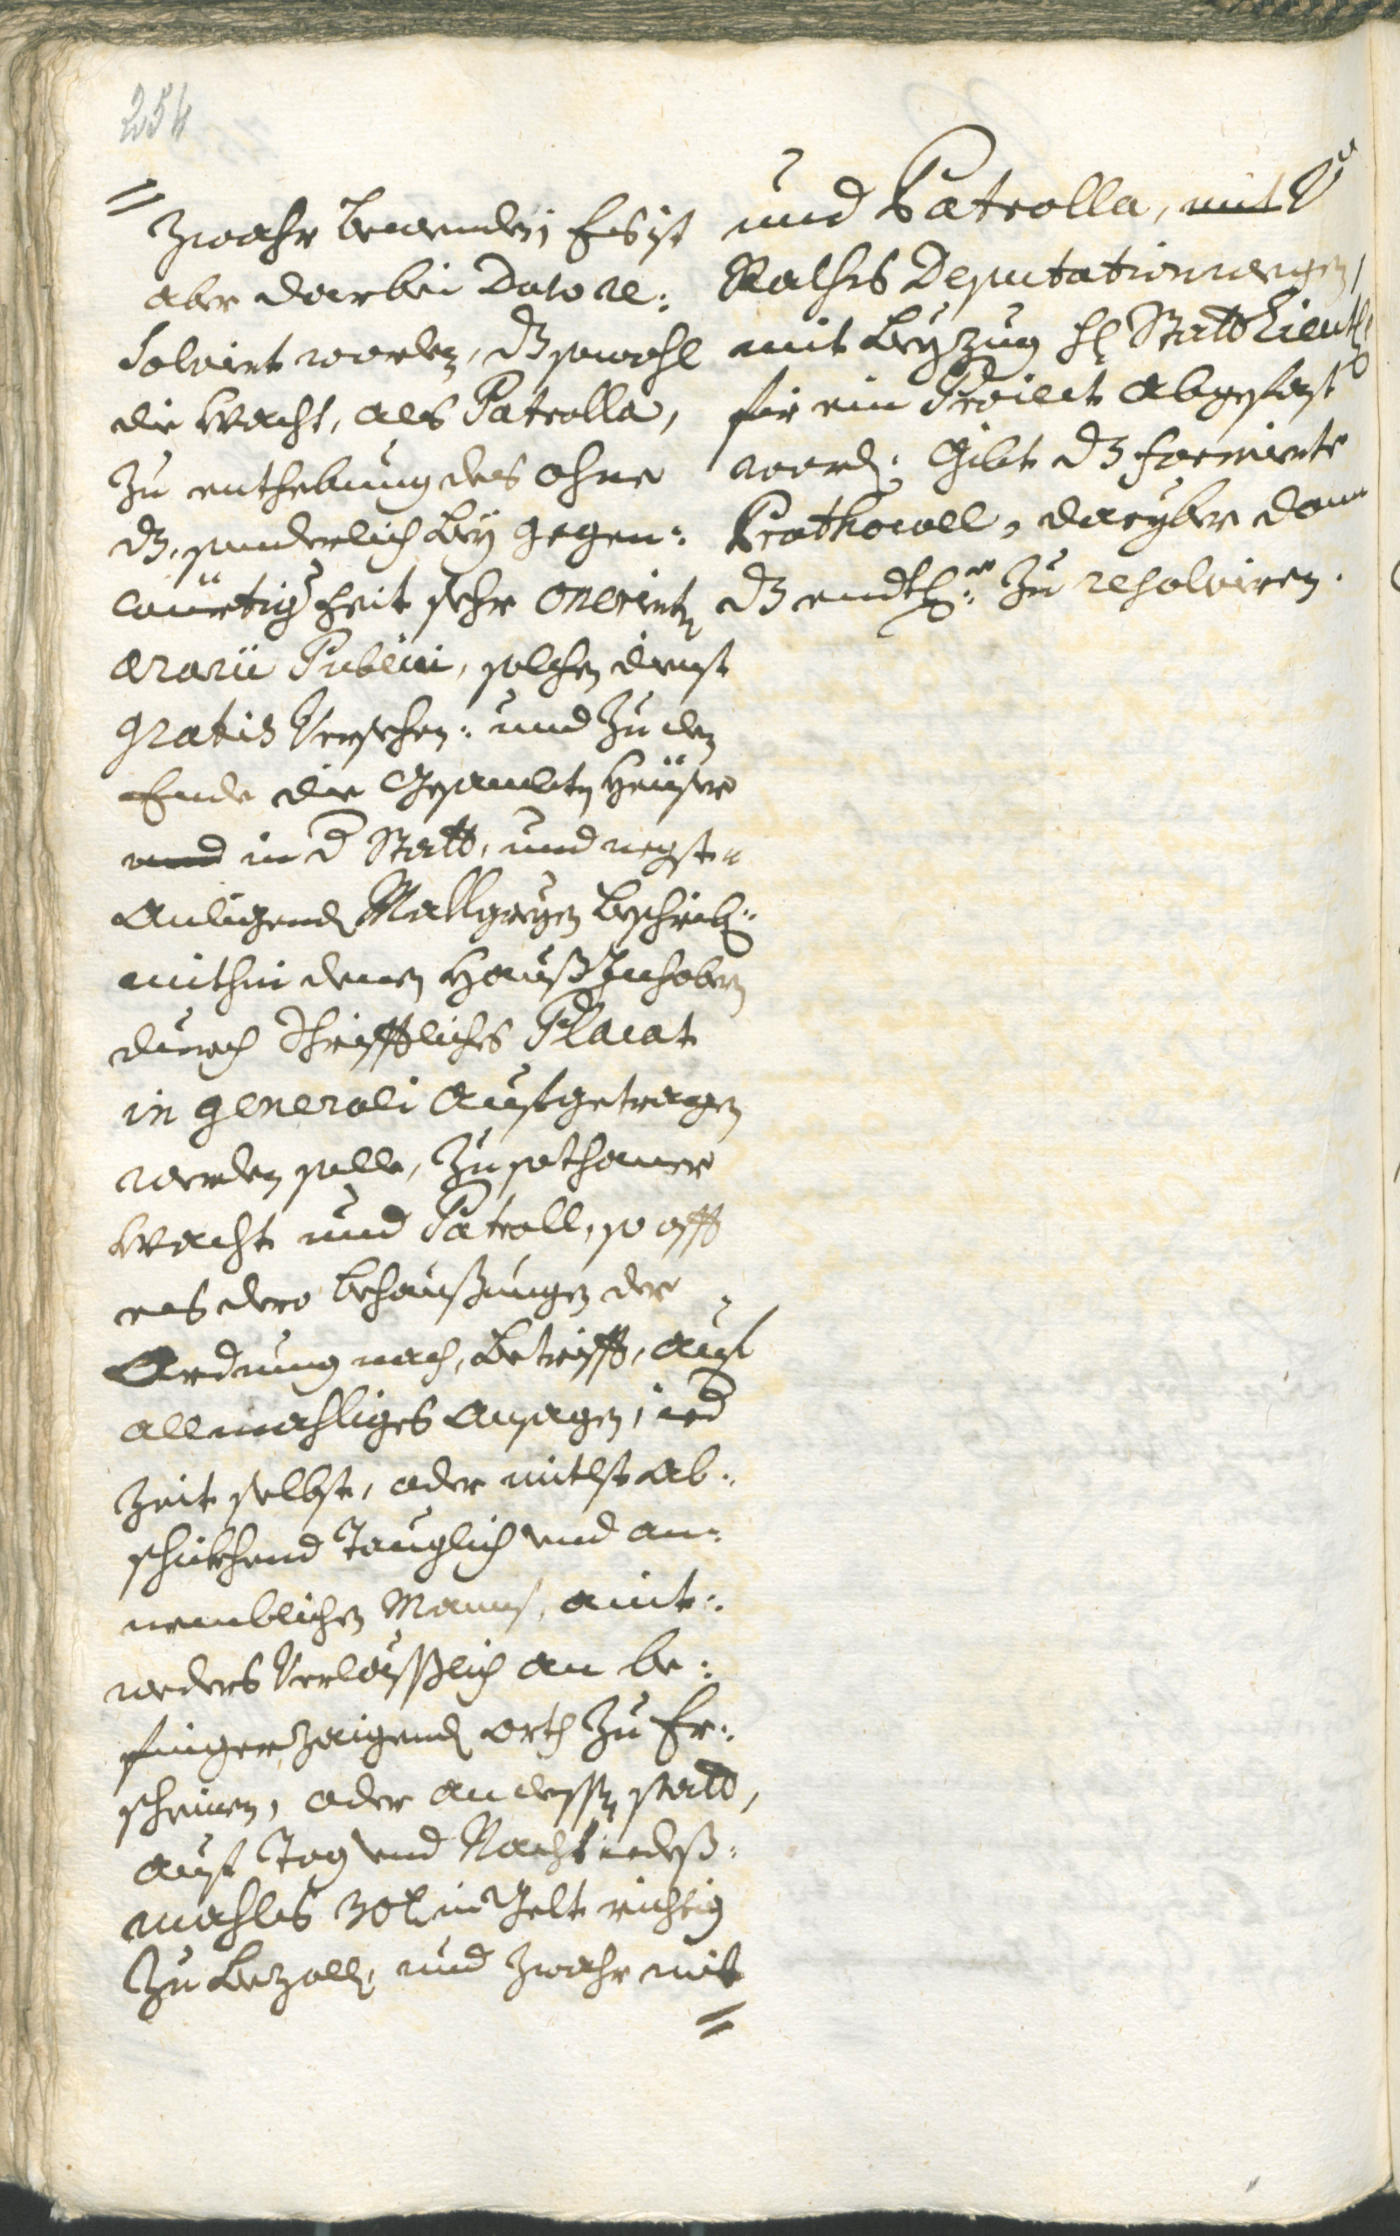 254
=
Zwahr bewenden; Es ist
aber darbei Dato re:
solvirt worden, dz sowohl
die Wacht, als Patrolla,
zu enthebung des ohne
dz, sonderlich bey gegen:
würtig Zeit sehr onerirtn
Ærarii Publici, solchen dienst
gratis versehen: und zu dem
Ende die Gesambten Heüser
und in d Statt, und negst
Anligend beschrieb:
mithin denen Hauß Inhabern
durch Schrifftliches Placat
in generali Aufgetragen
werden solle, zu sothaner
Wacht und Patroll, so offt
es dero behaußungen der
Ordnung nach, betrifft, auf
allmahliges Ansagen, ied
Zeit selbst, oder mitlst Ab:
schickhend Tauglich und an:
nemblichen Manns, aint:
weders Verlässlich an be:
fingerzaigend orth zu Er:
scheinen, oder an dessen statt,
auf Tag und Nacht iedeß:
mahls 30 x in Gelt richtig
zu bezalln, und Zwahr mit
=
und Patrolla, mit
Raths Deputation wegen,
mit Beyzug H Statt Leuth:
für ein Proiect Abgefast
word: Gibt dz formirte
Prothocoll, daryber dann
dz endtl: zu resolviren.